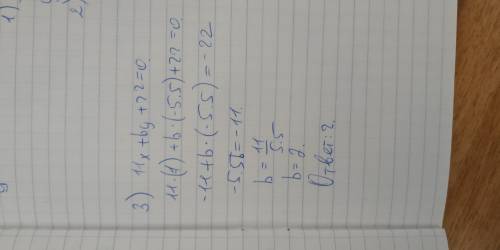 1)
2)
3) 11x+by+22=0
11·(1)+b·(-5.5)+22=0
-11+b·(-5.5)=-22
-5.5b=-11.
b=11/5.5
b=2.
Ответ: 2.